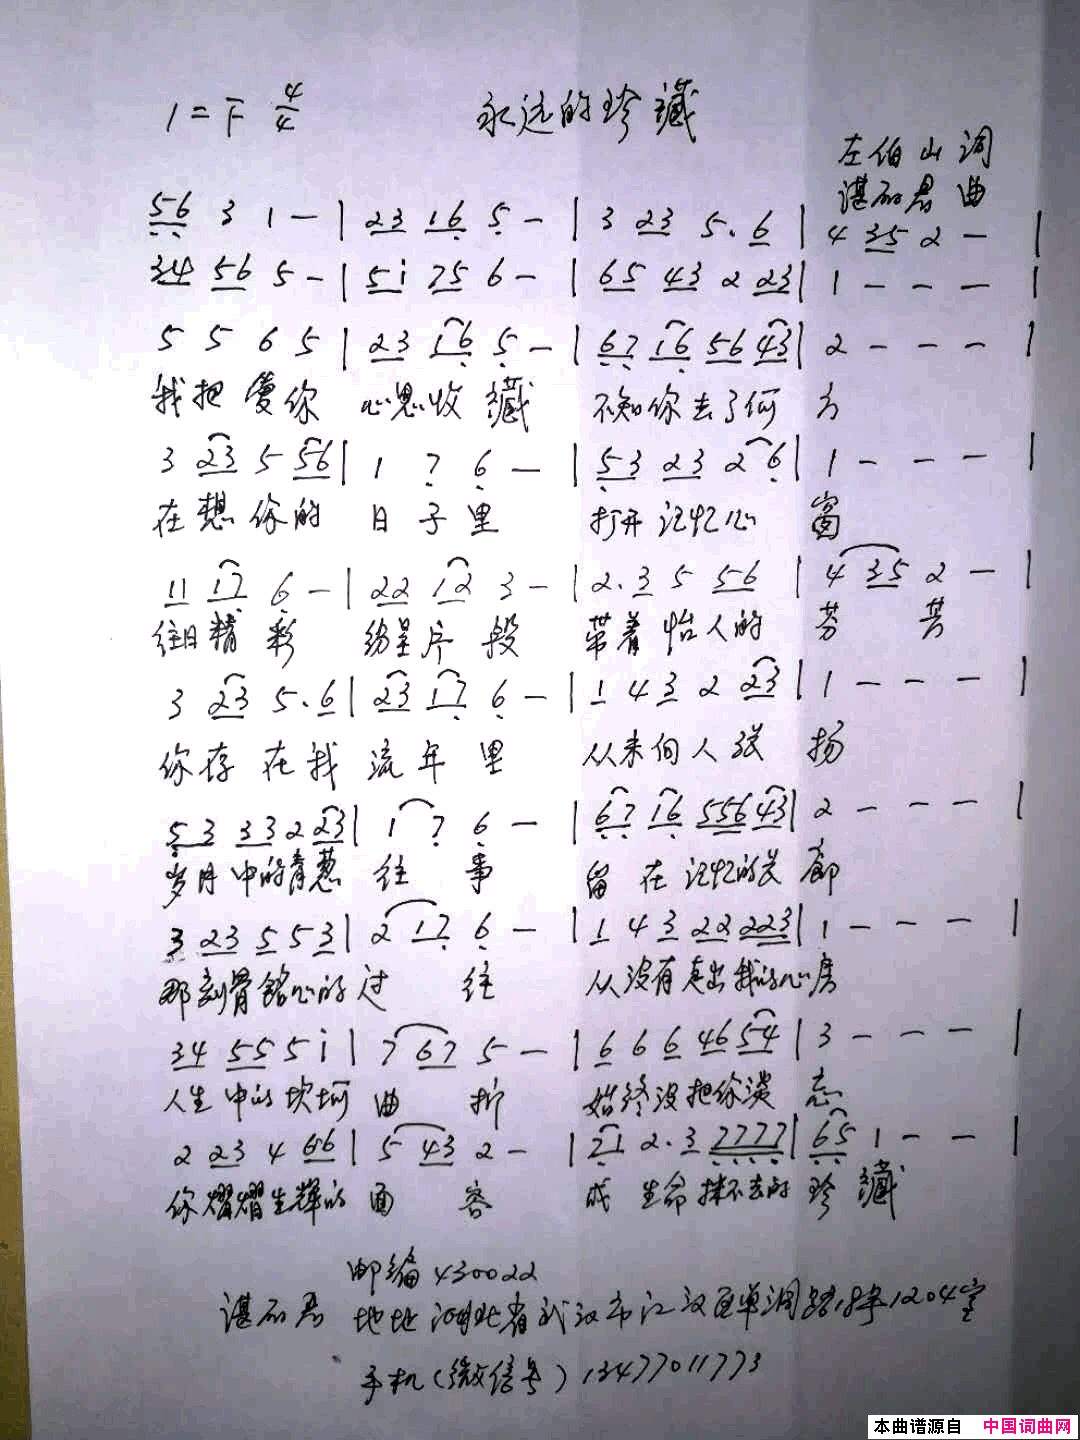 1=F 4/4 永远的珍藏
左伯山 词
谌砺君 曲
56 3 1 - | 23 16 5 - | 3 23 5. 6 | 4 35 2 - |
34 56 5 - | 5i 75 6 - | 65 43 2 23 | 1 - - - |
5 5 6 5 | 23 16 5 - | 67 16 56 43 | 2 - - - |
我把爱你 心思收藏 不知你去了何方
3 23 5 56 | 1 7 6 - | 53 23 2 6 | 1 - - - |
在想你的 日子里 打开记忆心窗
11 17 6 - | 22 12 3 - | 2. 3 5 56 | 4 35 2 - |
往日精彩 纷呈片段 带着怡人的 芬芳
3 23 5. 6 | 23 17 6 - | 1 4 3 2 23 | 1 - - - |
你存在我 流年里 从未向人张扬
53 33 2 23 | 1 7 6 - | 67 16 556 43 | 2 - - - |
岁月中的青葱 往事 留在记忆的长廊
3 23 5 5 3 | 2 17 6 - | 1 4 3 22 223 | 1 - - - |
那刻骨铭心的过往 从没有走出我的心房
34 55 5 i | 7 67 5 - | 6 6 6 46 54 | 3 - - - |
人生中的坎坷 曲折 始终没把你淡忘
2 23 4 66 | 5 43 2 - | 21 2. 3 7777 | 65 1 - - |
你熠熠生辉的 面容 成生命抹不去的 珍藏
邮编 430022
地址 湖北省武汉市江汉区单洞路 1204室
手机(微信号) 13477011773
本曲谱源自 中国词曲网